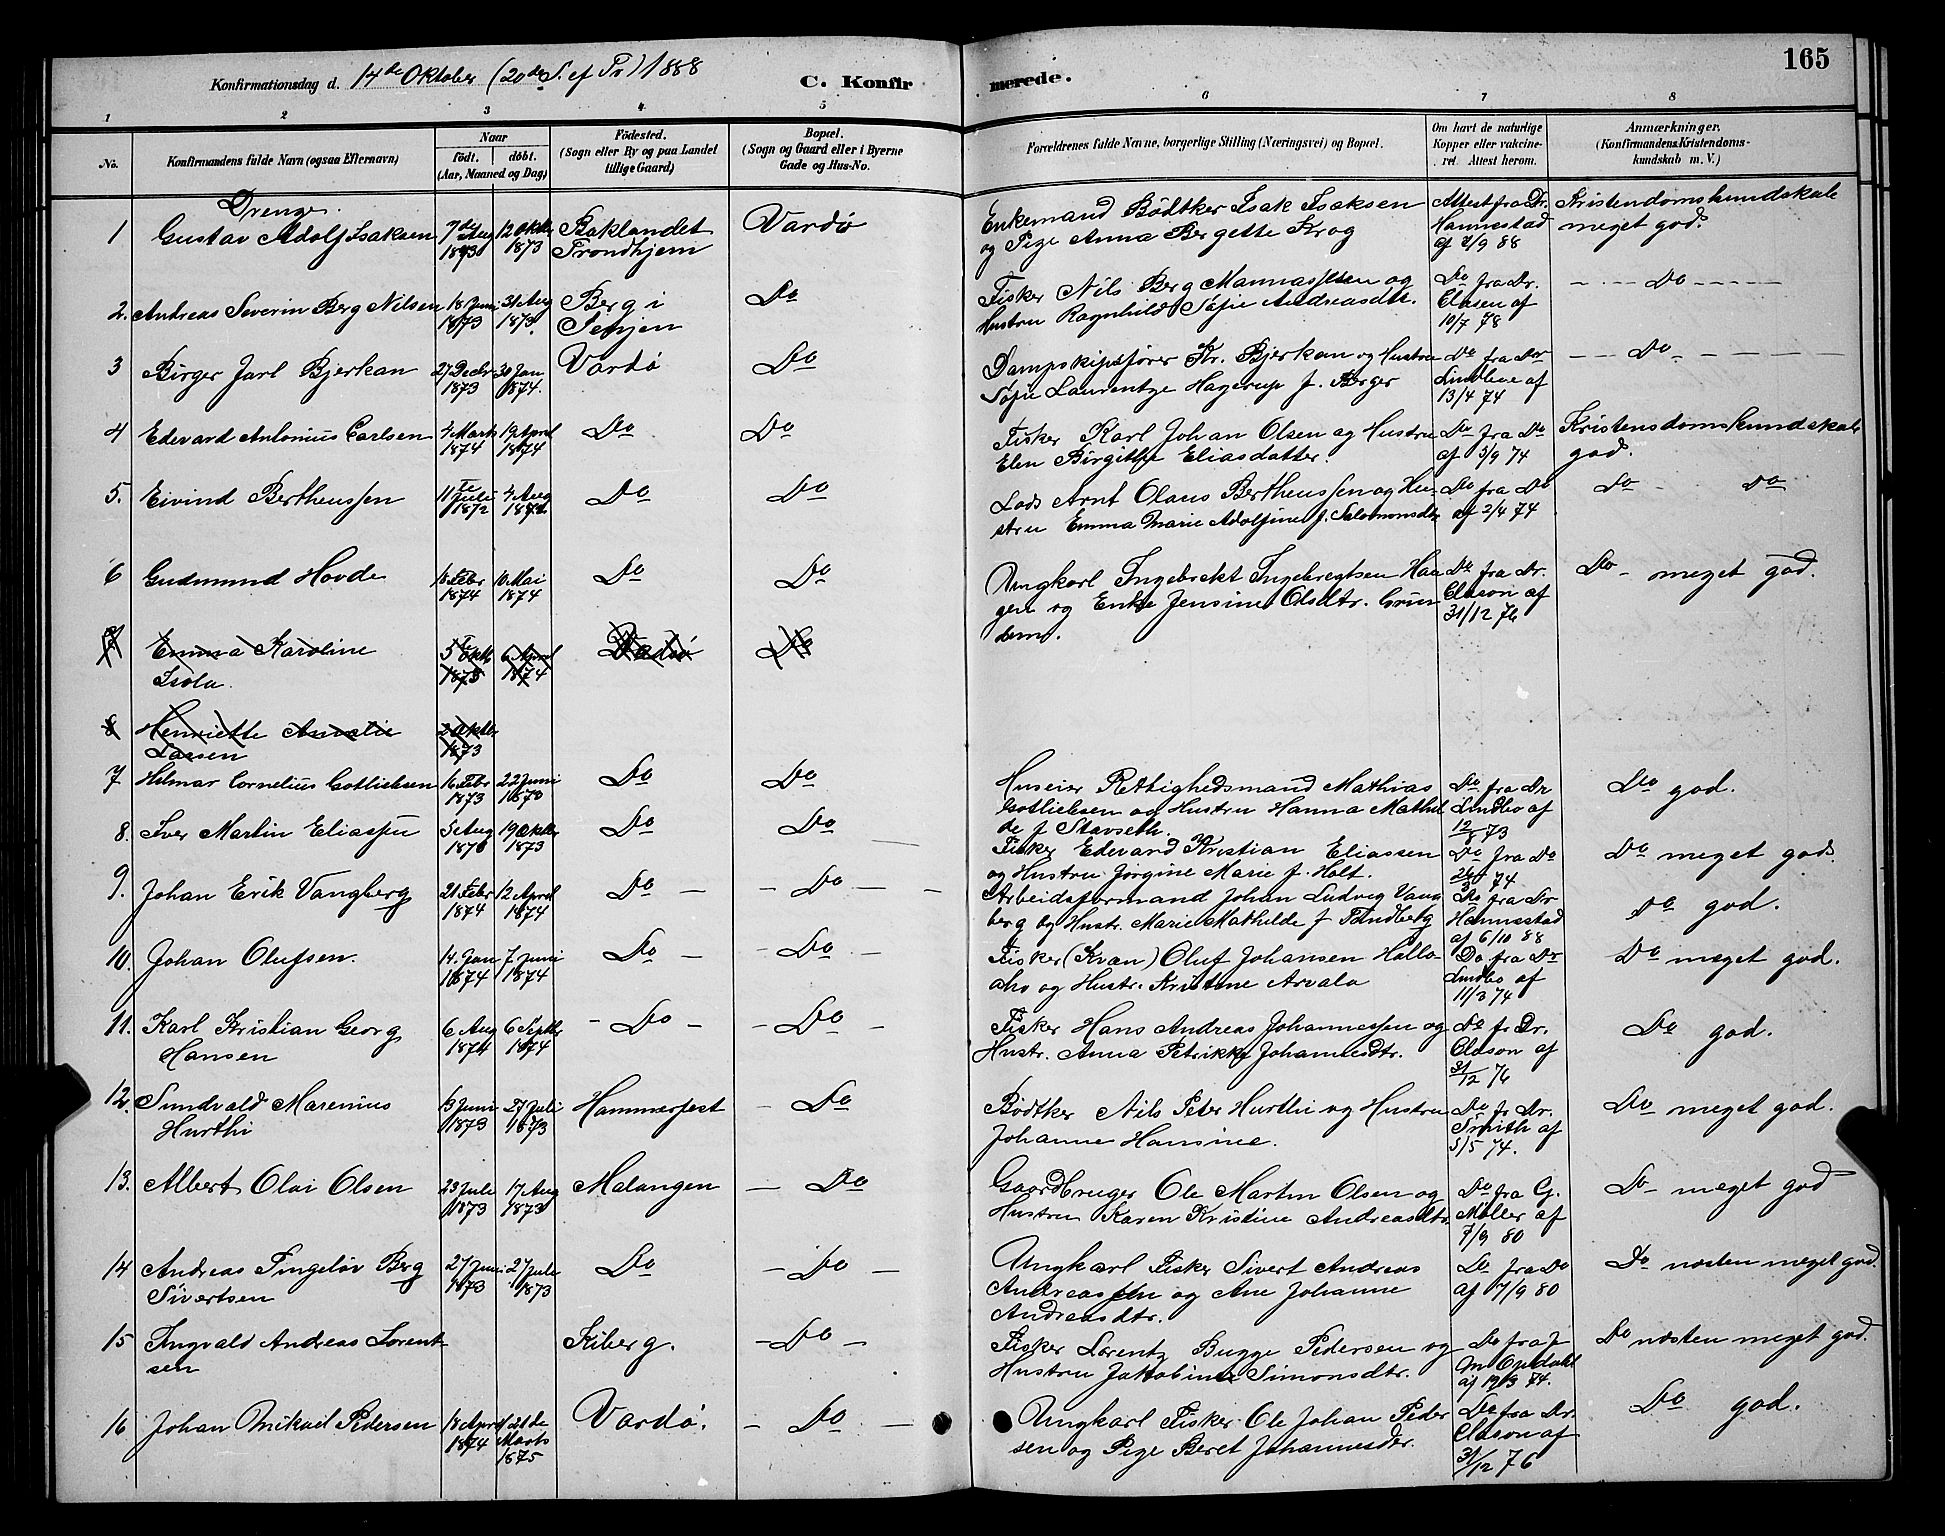 165
Konfirmationsdag d. 14de Oktober (20de S. ef Tr) 1888
C. Konfirmerede.
1 2 3 4 5 6 7 8
No.
Konfirmandens fulde Navn (ogsaa Efternavn)
Naar
födt. döbt.
(Aar, Maaned og Dag)
Födested.
(Sogn eller By og paa Landet
tillige Gaard)
Bopæl.
(Sogn og Gaard eller i Byerne
Gade og Hus-No.
Forældrenes fulde Navne, borgerlige Stilling (Næringsvei) og Bopæl.
Om havt de naturlige
Kopper eller vaccine-
ret. Attest herom.
Anmærkninger.
(Konfirmandens Kristendoms-
kundskab m. V.)
Drenge.
1 Gustav Adolf Isaksen 7de Aug 1873 12 Oktbr 1873 Baklandet Trondhjem Vardø
Enkemand Bödtker Isak Isaksen
og Pige Anna Bergette Krog
Attest fra Dr.
Hannestad
af 4/9 88
Kristendomskundskab
meget god.
2. Andreas Severin Berg Nilsen 18 Juni 1873 31 Aug 1873. Berg i Senjen Do
Fisker Nils Berg Mannassen og
Hustru Ragnhild Sofie Andreasdtr.
Do fra Dr.
Clasen af
10/7 78
Do
3 Birger Jarl Bjerkan 27 Decbr 1873 30 Jan 1874. Vardø Do
Dampskipsfører Kr. Bjerkan og Hustru
Sofie Laurentze Hagerup f. Berger
Do fra Dr
Lindboe af
13/4 74
Do
4 Edevard Antonius Carlsen 4 Marts 1874 19 April 1874 Do Do
Fisker Karl Johan Olsen og Hustru
Elen Birgitte Eliasdatter.
Do fra Do
af 3/9 74
Kristensdomskundskab
god.
5. Eivind Bertheussen 11te Juli 1872 4 Aug Do Do
Lods Arnt Olaus Bertheussen og Hu-
stru Emma Marie Adolfine f. Salomonsdtr
Do fra Do
af 2/4 74
Do Do
6 Gudmund Hovde 18 Febr 1874 10 Mai 1874 Do Do
Ungkarl Ingebrekt Ingebregtsen Haa
gen og Enke Jensine Olsdtr. Grun
dem.
Do fra Dr.
Clason af
31/12 76
Do meget god.
7 Emma Karoline 5te Oktb 1873 6 April 1874 Vadsø Do
Isola.
8 Henriette Amalie 2 Oktbr 1873
Larsen
7 Hilmar Cornelius Gotliebsen 16 Febr 1873 22 Juni 1873 Do Do
Huseier Rettighedsmand Mathias
Gotliebsen og Hustru Hanna Mathil
de f Stavseth.
Do fra Dr
Lindbo af
12/8 73
Do god.
8. Iver Martin Eliassen 5 Aug 19 Oktbr 1873 Do Do
Fisker Edevard Kristian Eliassen
og Hustru Jørgine Marie f. Holt.
Do fra Do
74
Do meget god.
9. Johan Erik Vangberg 21 Febr 1874 12 April 1874 Do Do
Arbeidsformand Johan Ludvig Vang
berg og Hustr. Marie Mathilde f Tandberg
Do fra Dr
Hannestad
af 6/10 88
Do god.
10. Johan Olufsen. 14. Jan 1874 7 Juni 1874 Do Do
Fisker (Kvæn) Oluf Johansen Hallo
aho og Hustr. Kristine Arvala
Do fra Dr
Lindbo af
11/3 74
Do meget god.
11. Karl Kristian Georg 6 Aug 1874 6 Septbr 1874 Do Do
Hansen
Fisker Hans Andreas Johannessen og
Hustr. Anna Petrikke Johannesdtr.
Do fr Dr.
Clason af
31/12 76
Do god.
12. Sundvald Marenius 13 Juni 1873 27 Juli 1873 Hammerfest Do
Hurthi
Bödtker Nils Peter Hurthi og Hustru
Johanne Hansine.
Do fr Dr.
Smith af
5/5 74.
Do meget god.
13. Albert Olai Olsen 23 Juli 1873 17 Aug 1873 Malangen Do
Gaardbruger Ole Martin Olsen og
Hustru Karen Kristine Andreasdtr.
Do fra G.
Møller af
7/9 80
Do meget god
14 Andreas Ingeløv Berg 27 Juni 1873 27 Juli 1873 Do Do
Sivertsen
Ungkarl Fisker Sivert Andreas
Andreassen og Ane Johanne
Andreasdtr.
Do fra Do
af 7/9 80
Do næsten meget god.
15 Ingvald Andreas Lorent- Kiberg. Do
sen
Fisker Lorentz Bugge Pedersen og
Hustru Jakobine Simonsdtr.
Do fra J
M Opdahl
af 19/3 74.
Do næsten meget god.
16 Johan Mikael Pedersen 18 April 1874 21de Marts 1875 Vardø. Do
Ungkarl Fisker Ole Johan Peder
sen og Pige Beret Johannesdtr.
Do fra Dr.
Clason af
31/12 76
Do god.